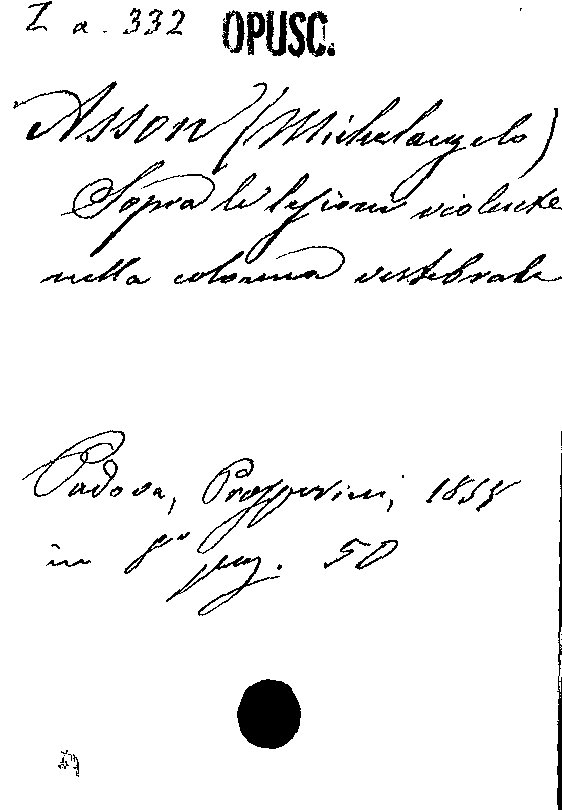 Z a. 332 OPUSC.
Asson (Michelangelo)
Sopra le lesioni violente
nella colonna vertebrale
Padova, Prosperini, 1858
in 8° pag. 50